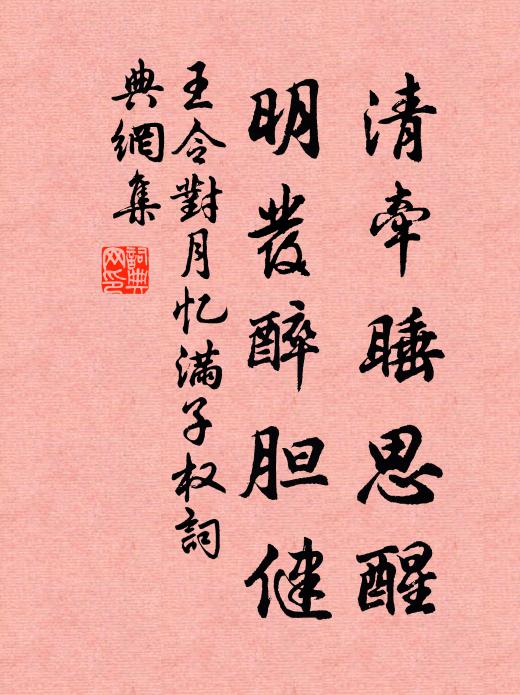 清牵睡思醒
明发醉胆健
王令對月忆满子权詞
典網集
詞典网印